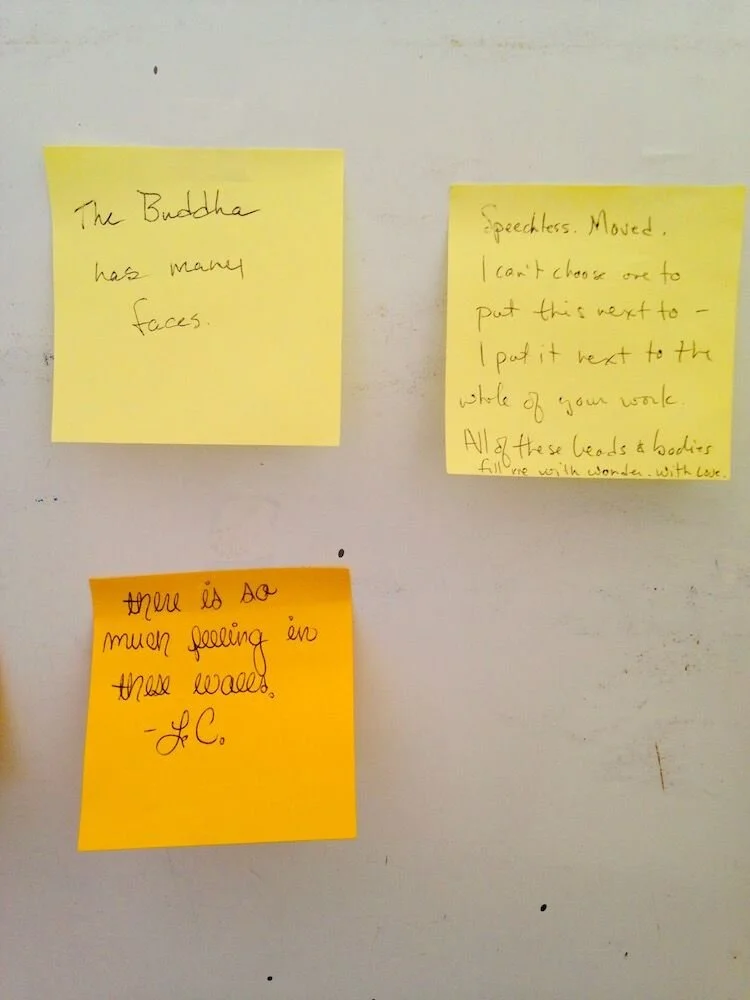 The Buddha
has many
faces.
Speechless. Moved.
I can't choose one to
put this next to –
I put it next to the
whole of your work.
All of these heads & bodies
fill me with wonder. with love.
there is so
much feeling in
these walls.
- L.C.